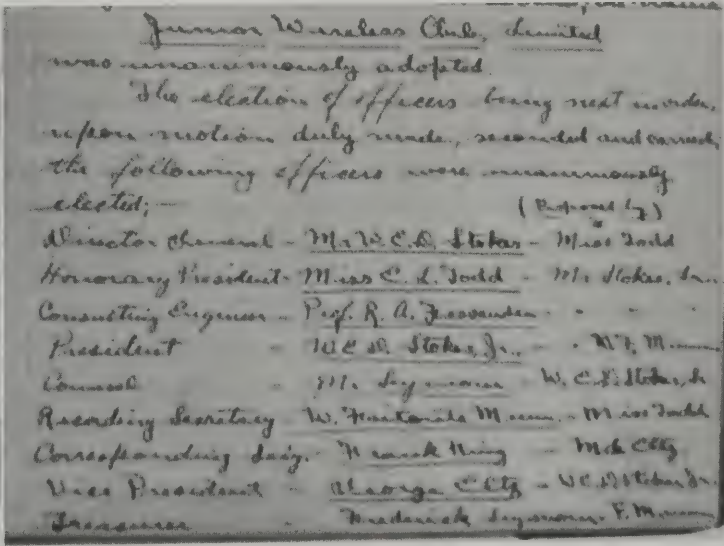 Junior Wireless Club, Limited
was unanimously adopted.
The election of officers being next in order,
upon motion duly made, seconded and carried,
the following officers were unanimously
elected;—
(Proposed by)
Director General - Mr W.E.D. Stokes - Miss Todd
Honorary President - Miss E. L. Todd - Mr Stokes, Sr.
Consulting Engineer - Prof. R. A. Fessenden - " " "
President - W.E.D. Stokes, Jr. - W. F. M
Counsel - Mr. Seymour - W.E.D. Stokes, Jr
Recording Secretary - W. Faitoute Munn. - Miss Todd
Corresponding Sec'y. - Frank King - Mr. Eltz
Vice President - George Eltz - W.E.D. Stokes Jr.
Treasurer - Frederick Seymour - F. M